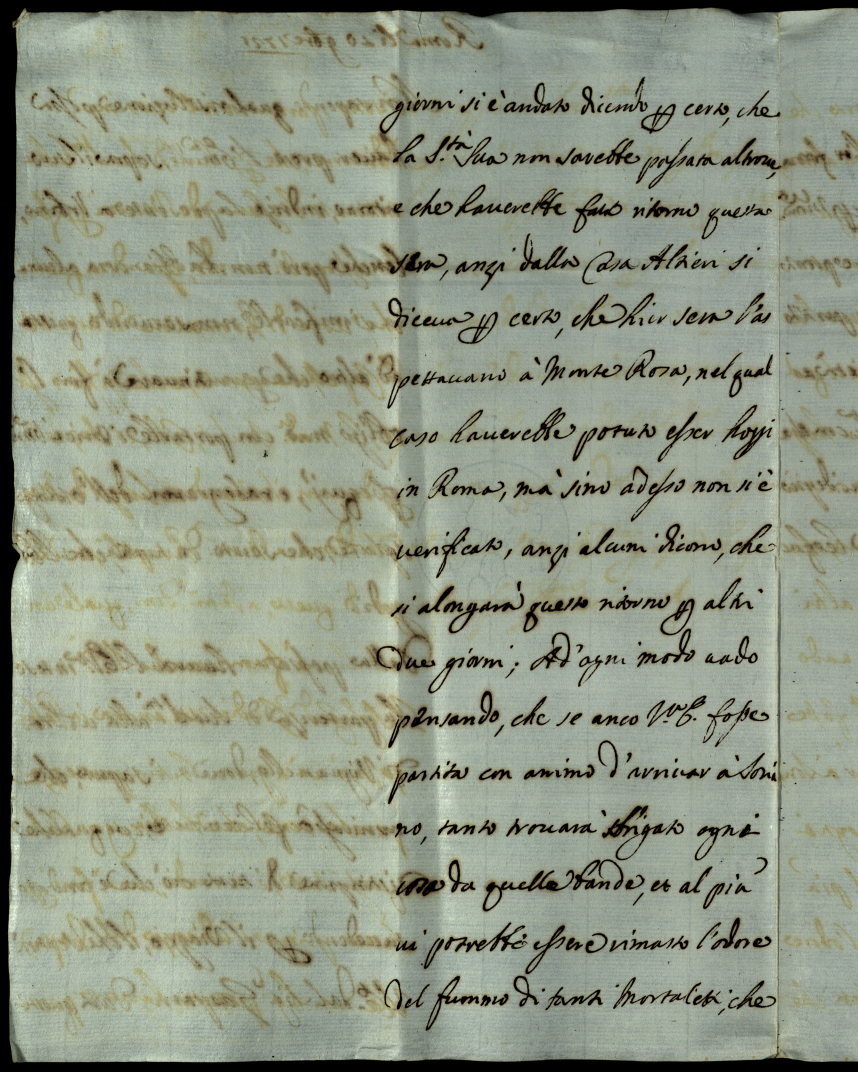 giorni si è andato dicendo ꝑ certo, che
la S.tà Sua non sarebbe passata altrove,
e che haverebbe fatto ritorno questa
sera, anzi dalla Casa Altieri si
diceva ꝑ certo, che hier sera l'as
pettavano à Monte Rosa, nel qual
caso haverebbe potuto esser hoggi
in Roma, mà sino adesso non si è
verificato, anzi alcuni dicono, che
si alongarà questo ritorno ꝑ altri
due giorni; Ad'ogni modo vado
pensando, che se anco V.E. fosse
partita con animo d'arrivar à Soria
no, tanto trovarà sbrigato ogni
cosa da quelle bande, et al più
vi potrebbe essere rimasto l'odore
del fummo di tanti Mortaletti, che